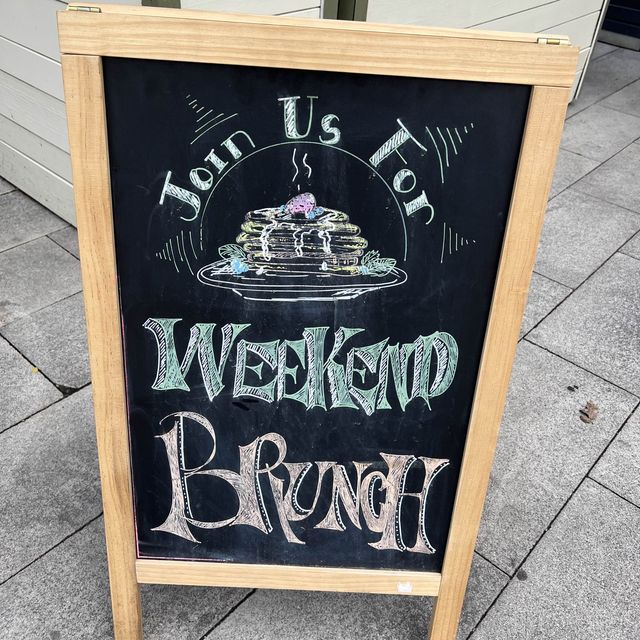 Join Us For
WEEKEND
BRUNCH